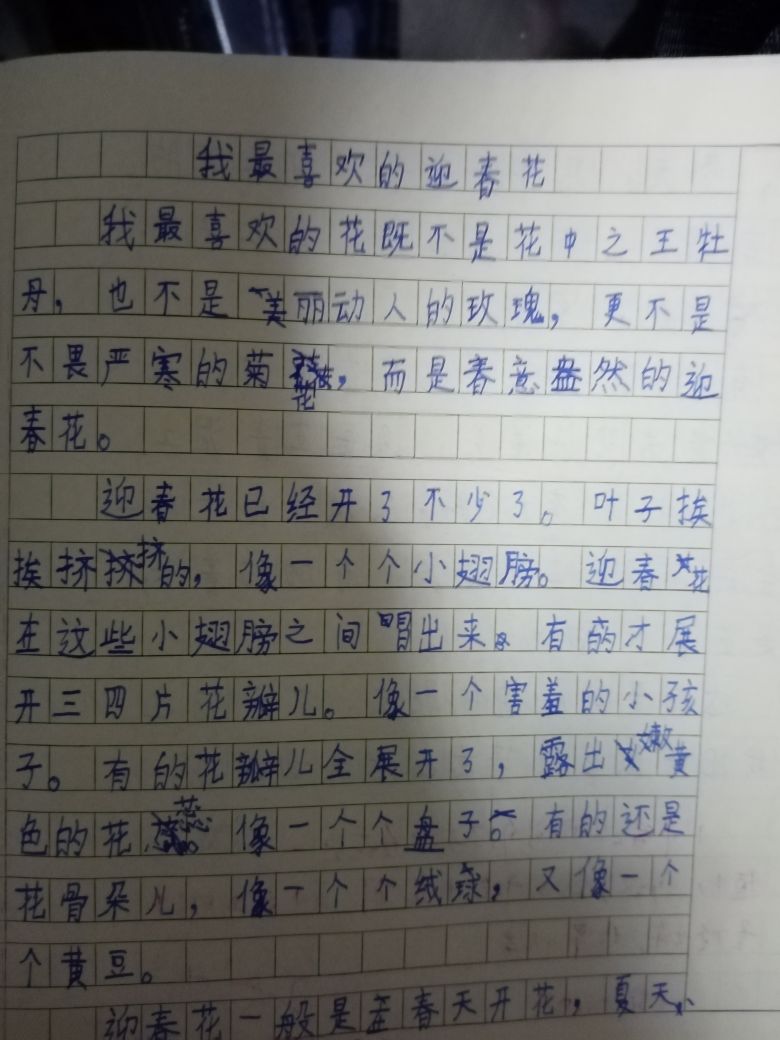 我最喜欢的迎春花
我最喜欢的花既不是花中之王牡
丹，也不是美丽动人的玫瑰，更不是
不畏严寒的菊花，而是春意盎然的迎
春花。
迎春花已经开了不少了。叶子挨
挨挤挤的，像一个个小翅膀。迎春花
在这些小翅膀之间冒出来。有的才展
开三四片花瓣儿。像一个害羞的小孩
子。有的花瓣儿全展开了，露出嫩黄
色的花蕊。像一个个盘子。有的还是
花骨朵儿，像一个个绒球，又像一个
个黄豆。
迎春花一般是在春天开花，夏天